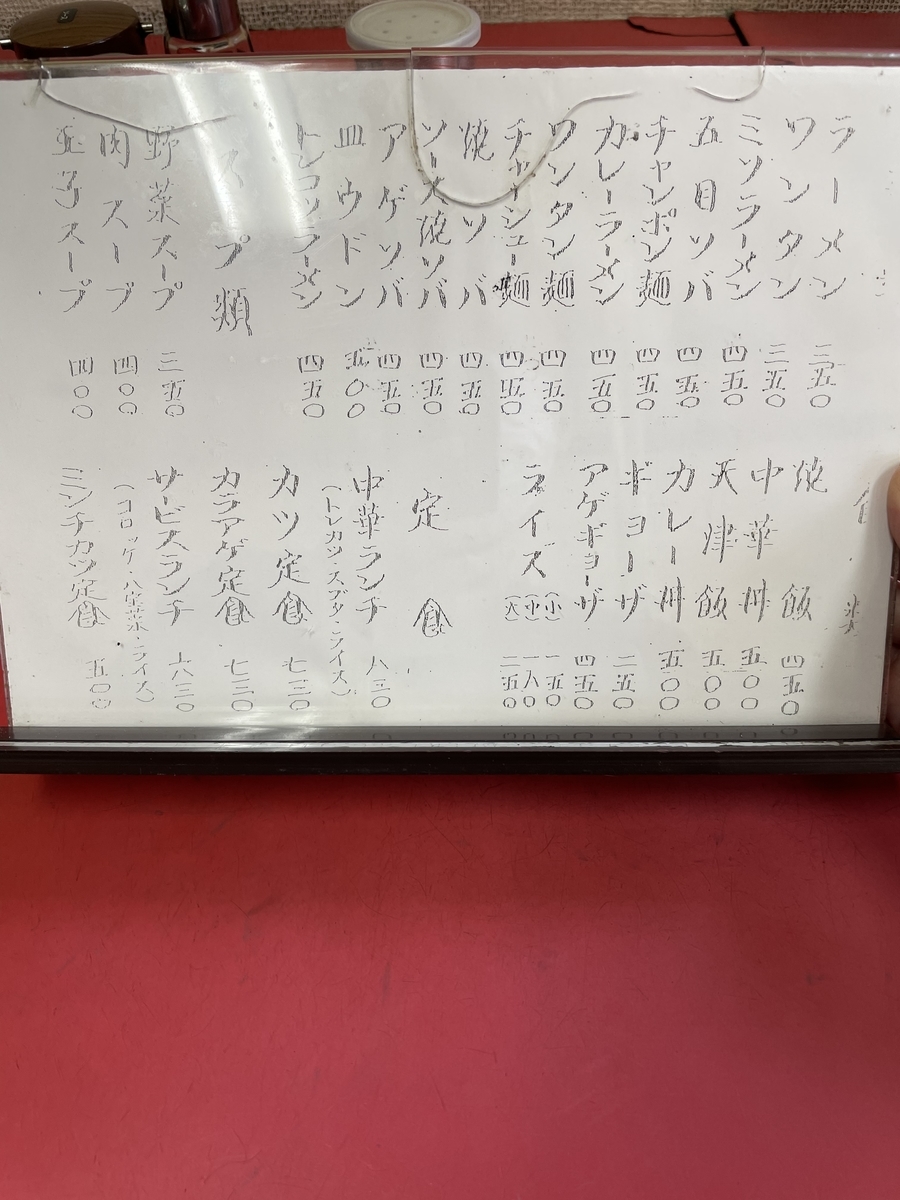 ラーメン 三五〇
ワンタン 三五〇
ミソラーメン 四五〇
五目ソバ 四五〇
チャンポン麺 四五〇
カレーラーメン 四五〇
ワンタン麺 四五〇
チャーシュー麺 四五〇
焼ソバ 四五〇
ソース焼ソバ 四五〇
アゲソバ 四五〇
皿ウドン 五〇〇
トンコツラーメン 四五〇
スープ類
野菜スープ 三五〇
肉スープ 四〇〇
玉子スープ 四〇〇
焼飯 四五〇
中華丼 五〇〇
天津飯 五〇〇
カレー丼 五〇〇
ギョーザ 二五〇
アゲギョーザ 四五〇
ライス (小) 一五〇
(中) 一八〇
(大) 二五〇
定食
中華ランチ 八三〇
(トレカツ・スブタ・ライス)
カツ定食 七三〇
カラアゲ定食 七三〇
サービスランチ 六三〇
(コロッケ・八宝菜・ライス)
ミンチカツ定食 五〇〇